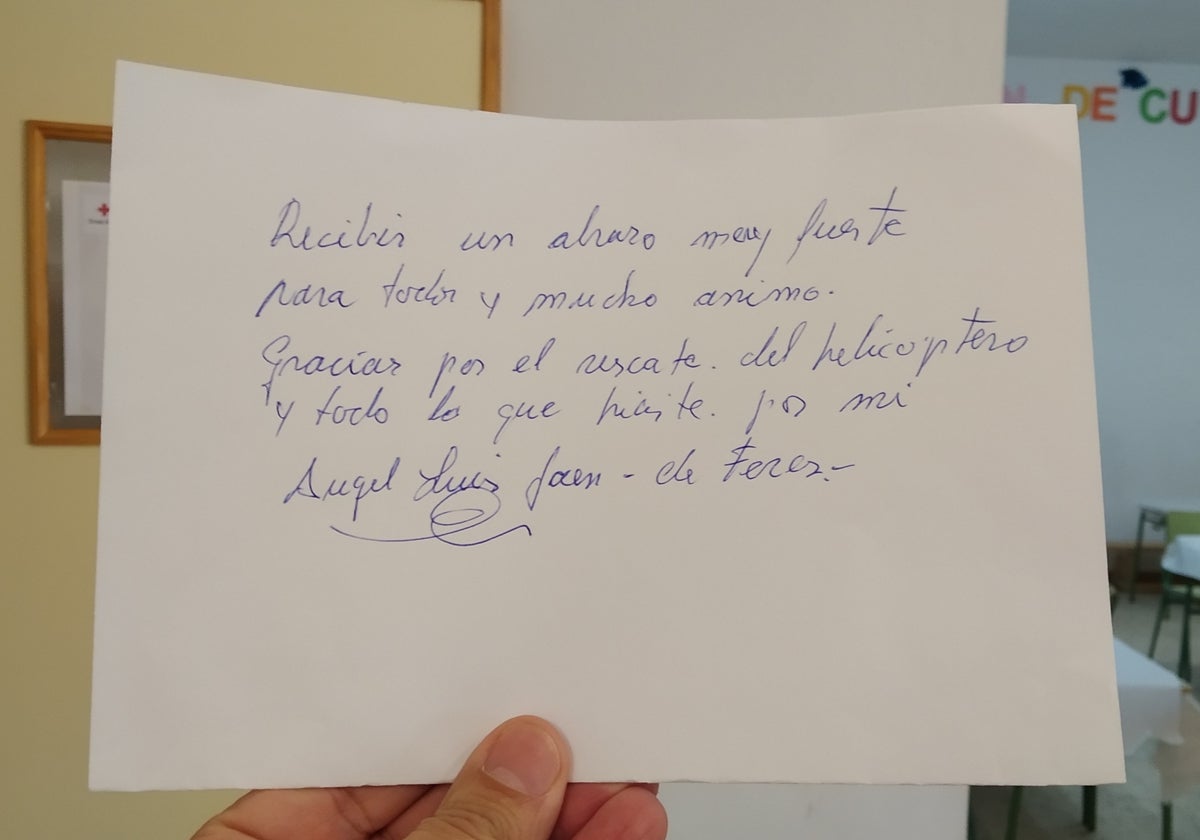 Recibir un abrazo muy fuerte
para todos y mucho animo.
Gracias por el rescate. del helicoptero
y todo lo que hiciste. por mi
Angel Luis Jaen - de Ferez.-
DE CU